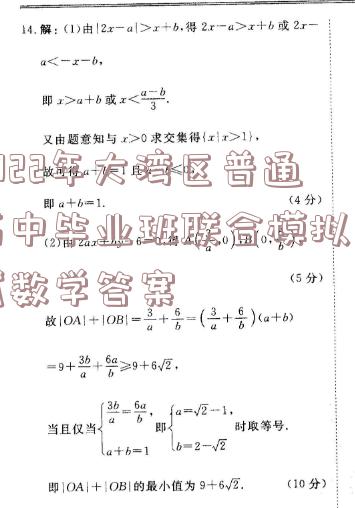 14.解：(1)由|2x-a|>x+b,得2x-a>x+b或2x-
a<-x-b,
即x>a+b或x<\frac{a-b}{3}.
又由题意知与x>0求交集得{x|x>1},
故可得a+b=1且
即a+b=1. (4分)
(2)由2ax+by
(5分)
故|OA|+|OB|=\frac{3}{a}+\frac{6}{b}=(\frac{3}{a}+\frac{6}{b})(a+b)
=9+\frac{3b}{a}+\frac{6a}{b}≥9+6√2,
当且仅当{\frac{3b}{a}=\frac{6a}{b}, a+b=1 即{a=√2-1, b=2-√2 时取等号.
即|OA|+|OB|的最小值为9+6√2. (10分)
022年大湾区普通
高中毕业班联合模拟
试数学答案